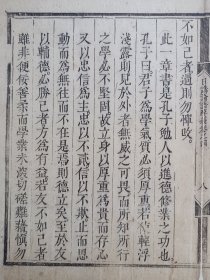 不如己者過則勿憚改
此一章書是孔子勉人以進德修業之功也
孔子曰君子爲學氣質必須厚重若輕浮
淺露則見於外者無威之可畏而所知所行
之學必不堅固故立身以厚重爲貴而存心
又以忠信爲主忠以不貳信以不欺止而思
動而爲無往而不在是焉則德立矣至於友
以輔德必勝己者方爲有益若友不如己者
雖非便佞善柔而學業未淡切磋難藉愼勿